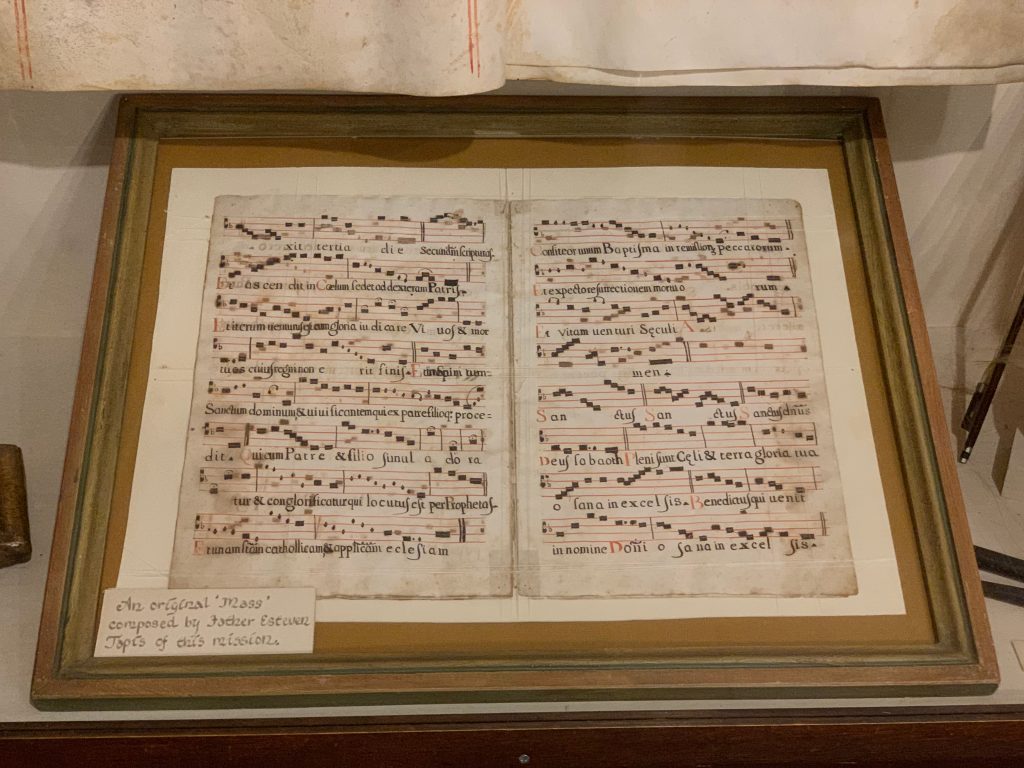 xit tertia die Secundũ scripturas.
Et as cen dit in Cœlum sedet ad dexteram Patris.
Et iterum uenturus est cum gloria iu di care Vi uos & mor
tuos cuius regni non e rit finis. Et in Spiri tum=
Sanctum dominum & ui ui fi cantem qui ex patre filioq; pro ce=
dit. Qui cum Patre & filio simul a do ra
tur & conglorificatur qui lo cutus est per Prophetas.
Et unam sãctam catholicam & applicãm eclesiam
Confiteor unum Baptisma in remissionẽ peccatorum.
Et expecto resurrectionem mortu o rum.
Et Vitam uenturi Sęculi. A
men.
San ctus San ctus Sanctus dñus
Deus sabaoth Pleni sunt Cęli & terra gloria tua
o sana in excel sis. Benedictus qui uenit
in nomine Domĩni o sana in excel sis.
An original 'Mass'
composed by Father Esteven
Tapis of this mission.